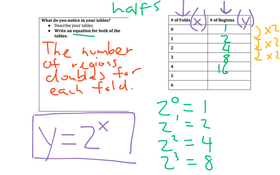 halfs
What do you notice in your tables?
• Describe your tables.
• Write an equation for both of the tables.
The number
of regions
doubles for
each fold.
y = 2^x
# of Folds (x) # of Regions (y)
0 1
1 2
2 4
3 8
4 16
5
6
x2
x2
x2
2^0 = 1
2^1 = 2
2^2 = 4
2^3 = 8